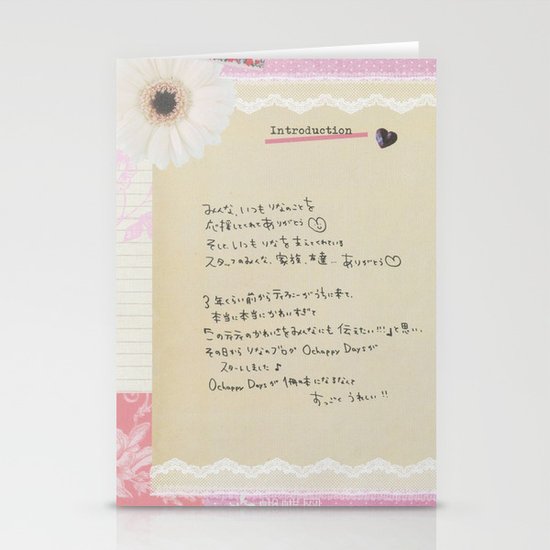 Introduction
みんな、いつもりなのことを
応援してくれてありがとう
そして、いつもりなを支えてくれている
スタッフのみんな、家族、友達... ありがとう♡
3年くらい前からティファニーがうちに来て、
本当に本当にかわいすぎて
「このティティのかわいさをみんなにも伝えたい!!!」と思い、
その日から りなのブログ Ochappy Daysが
スタートしました♪
Ochappy Daysが 1冊の本になるなんて
すっごく うれしい!!